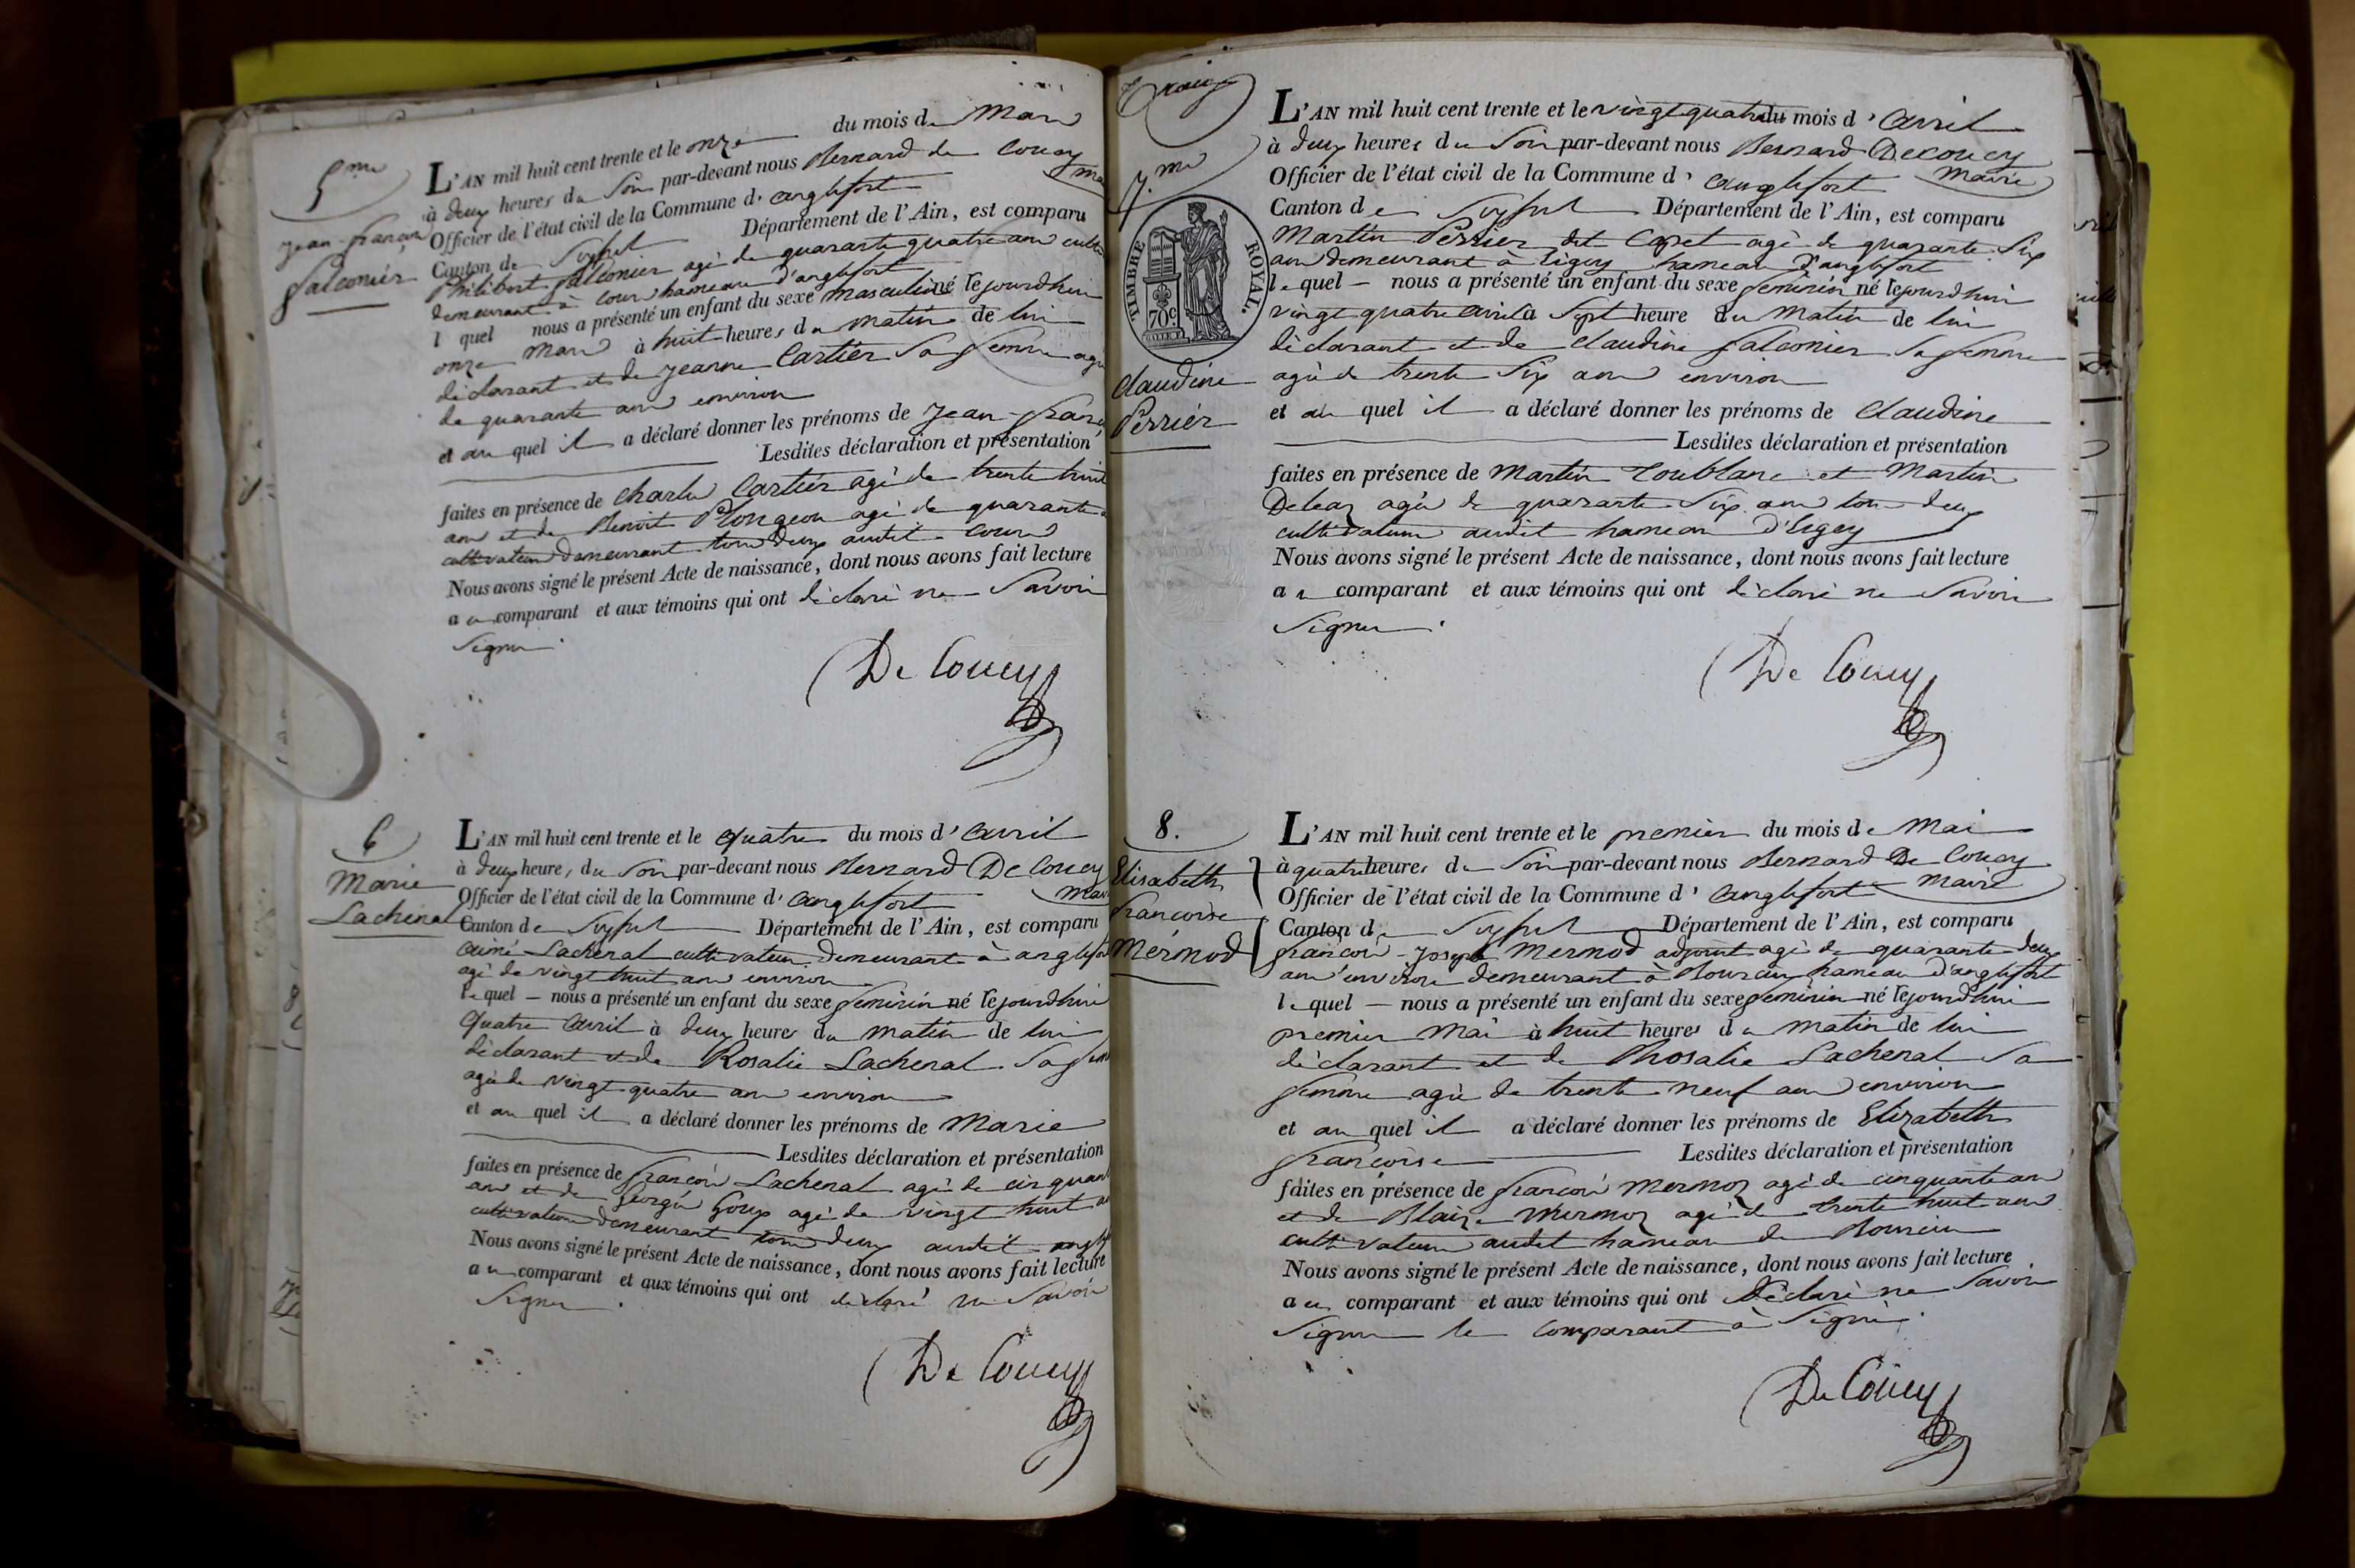 5.me
Jean-françois
falconier
L'AN mil huit cent trente et le onze du mois de Mars
à deux heures du Soir par-devant nous Bernard de Coucy
Officier de l'état civil de la Commune d'anglefort
Canton de Seyssel Département de l'Ain, est comparu
Philibert falconier agé de quarante quatre ans
demeurant à Cour hameau d'anglefort
l quel nous a présenté un enfant du sexe masculin né lejourdhui
onze Mars à huit heures du matin de lui
déclarant et de jeanne Cartier Sa femme
de quarante ans environ
et au quel il a déclaré donner les prénoms de Jean-
Lesdites déclaration et présentation
faites en présence de Charles Cartier agé de trente huit
ans et de Benoit Plongeon agé de quarante
cultivateurs demeurant tous deux audit Cour
Nous avons signé le présent Acte de naissance, dont nous avons fait lecture
au comparant et aux témoins qui ont déclaré ne Savoir
Signer.
De Coucy
6
Marie
Lachenal
L'AN mil huit cent trente et le quatre du mois d'avril
à deux heures du Soir par-devant nous Bernard De Coucy
Officier de l'état civil de la Commune d'anglefort
Canton de Seyssel Département de l'Ain, est comparu
aimé Lachenal cultivateur demeurant à
agé de vingt huit ans environ
lequel nous a présenté un enfant du sexe feminin né lejourdhui
quatre avril à deux heures du matin de lui
déclarant et de Rosalie Lachenal Sa
agée de vingt quatre ans environ
et au quel il a déclaré donner les prénoms de Marie
Lesdites déclaration et présentation
faites en présence de françois Lachenal agé de
ans et de Georges Goux agé de vingt huit
cultivateurs demeurant tous deux audit
Nous avons signé le présent Acte de naissance, dont nous avons fait lecture
au comparant et aux témoins qui ont déclaré ne Savoir
Signer.
De Coucy
7.me
TIMBRE ROYAL.
70c
Claudine
Perrier
L'AN mil huit cent trente et le vingtquatre du mois d'avril
à deux heures du Soir par-devant nous Bernard Decoucy
Maire
Officier de l'état civil de la Commune d'anglefort
Canton de Seyssel Département de l'Ain, est comparu
Martin Perrier dit Capet agé de quarante Six
ans demeurant à hameau d'anglefort
lequel nous a présenté un enfant du sexe feminin né lejourdhui
vingt quatre avril à Sept heure du Matin de lui
déclarant et de Claudine falconier Sa femme
agée de trente Six ans environ
et au quel il a déclaré donner les prénoms de Claudine
Lesdites déclaration et présentation
faites en présence de Martin et Martin
agés de quarante Six ans tous deux
cultivateurs audit hameau
Nous avons signé le présent Acte de naissance, dont nous avons fait lecture
au comparant et aux témoins qui ont déclaré ne Savoir
Signer.
De Coucy
8.
Elisabeth
françoise
Mermod
L'AN mil huit cent trente et le premier du mois de Mai
à quatre heures du Soir par-devant nous Bernard De Coucy
Maire
Officier de l'état civil de la Commune d'anglefort
Canton de Seyssel Département de l'Ain, est comparu
françois-Joseph Mermod adjoint agé de quarante deux
ans environ demeurant à hameau d'anglefort
lequel nous a présenté un enfant du sexe feminin né lejourdhui
premier Mai à huit heures du matin de lui
déclarant et de Rhosalie Lachenal Sa
femme agée de trente neuf ans environ
et au quel il a déclaré donner les prénoms de Elizabeth
françoise Lesdites déclaration et présentation
faites en présence de françois Mermoz agé de cinquante ans
et de Blaize Mermoz agé de trente huit ans
cultivateurs audit hameau de
Nous avons signé le présent Acte de naissance, dont nous avons fait lecture
au comparant et aux témoins qui ont Déclaré ne Savoir
Signer le comparant à Signé.
De Coucy